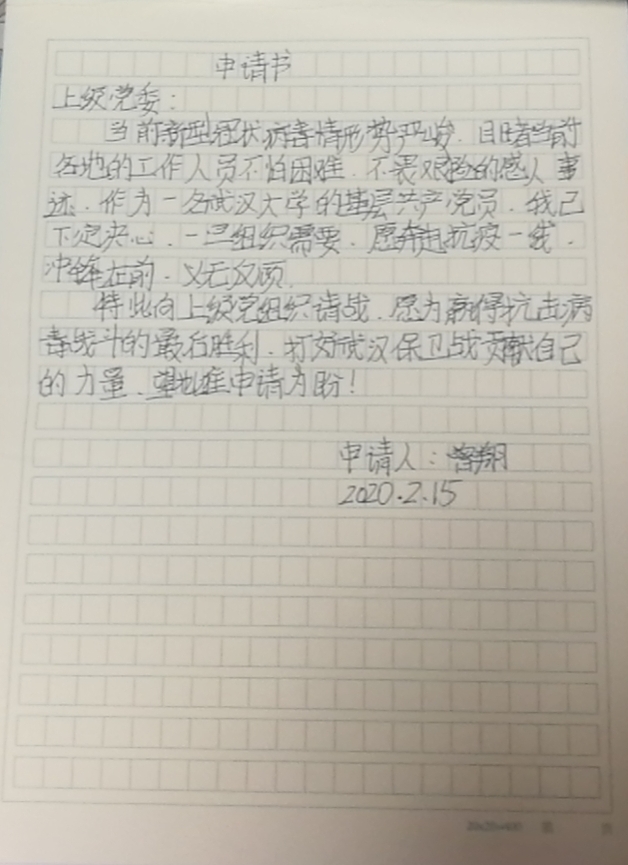 申请书
上级党委：
当前新型冠状病毒情形势严峻，目睹当前
各地的工作人员不怕困难，不畏艰险的感人事
迹，作为一名武汉大学的基层共产党员，我已
下定决心，一旦组织需要，愿奔赴抗疫一线，
冲锋在前，义无反顾。
特此向上级党组织请战，愿为赢得抗击病
毒战斗的最后胜利，打好武汉保卫战贡献自己
的力量，望批准申请为盼！
申请人：曾翔
2020.2.15
20×20=400 第 页